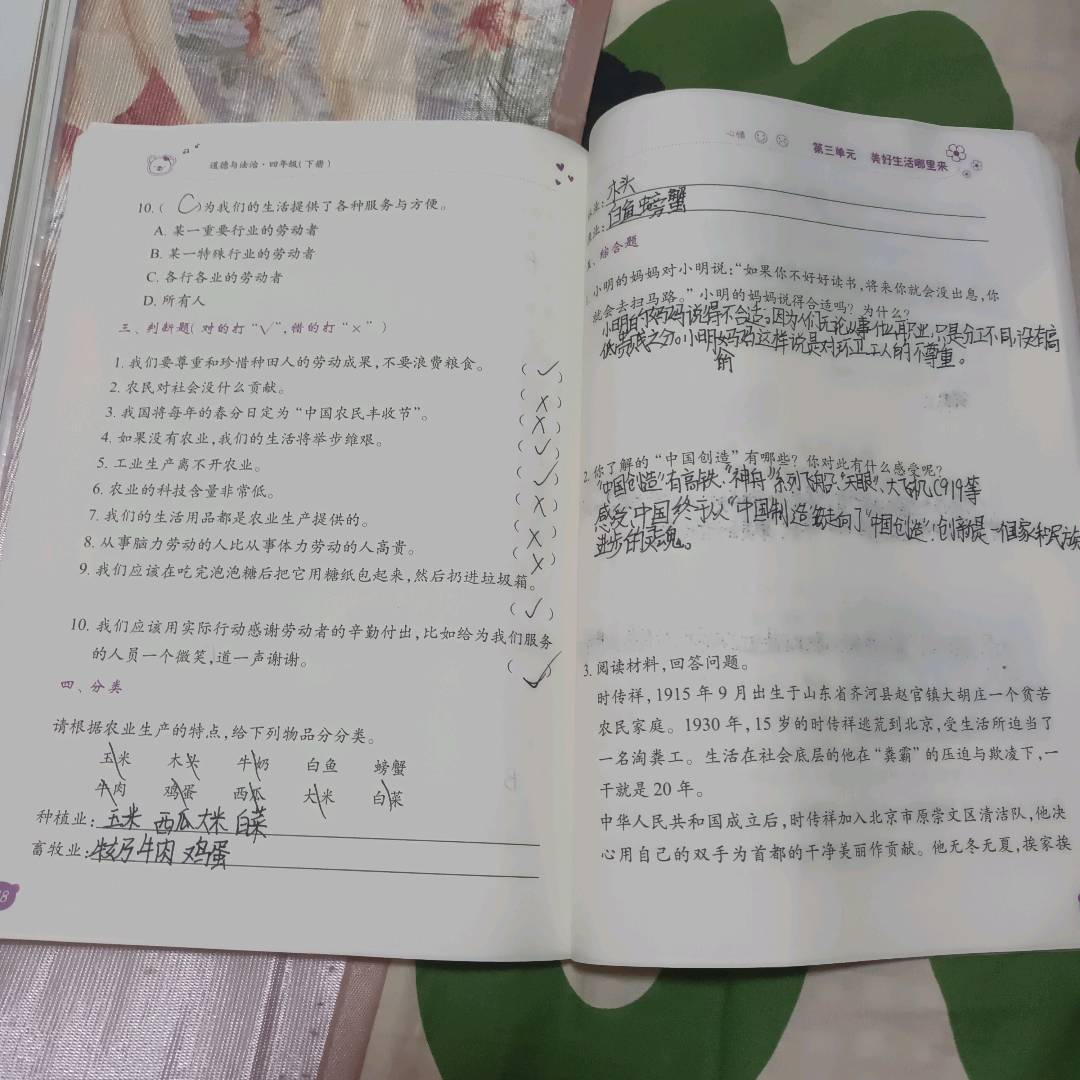 道德与法治·四年级(下册)
10.( C )为我们的生活提供了各种服务与方便。
A. 某一重要行业的劳动者
B. 某一特殊行业的劳动者
C. 各行各业的劳动者
D. 所有人
三、判断题(对的打“√”,错的打“×”)
1. 我们要尊重和珍惜种田人的劳动成果,不要浪费粮食。 ( √ )
2. 农民对社会没什么贡献。 ( × )
3. 我国将每年的春分日定为“中国农民丰收节”。 ( × )
4. 如果没有农业,我们的生活将举步维艰。 ( √ )
5. 工业生产离不开农业。 ( √ )
6. 农业的科技含量非常低。 ( × )
7. 我们的生活用品都是农业生产提供的。 ( × )
8. 从事脑力劳动的人比从事体力劳动的人高贵。 ( × )
9. 我们应该在吃完泡泡糖后把它用糖纸包起来,然后扔进垃圾箱。
( √ )
10. 我们应该用实际行动感谢劳动者的辛勤付出,比如给为我们服务
的人员一个微笑,道一声谢谢。 ( √ )
四、分类
请根据农业生产的特点,给下列物品分分类。
玉米 木头 牛奶 白鱼 螃蟹
牛肉 鸡蛋 西瓜 大米 白菜
种植业:玉米 西瓜 大米 白菜
畜牧业:牛奶 牛肉 鸡蛋
心情
第三单元 美好生活哪里来
业:木头
业:白鱼 螃蟹
、综合题
小明的妈妈对小明说:“如果你不好好读书,将来你就会没出息,你
就会去扫马路。”小明的妈妈说得合适吗?为什么?
小明的妈妈说得不合适。因为人们无论从事什么职业,只是分工不同,没有高
低贵贱之分。小明的妈妈这样说是对环卫工人的不尊重。
2. 你了解的“中国创造”有哪些?你对此有什么感受呢?
“中国创造”有高铁、“神舟”系列飞船、“天眼”、大飞机C919等
感受:中国终于从“中国制造”走向了“中国创造”,创新是一个国家和民族
进步的灵魂。
3. 阅读材料,回答问题。
时传祥,1915年9月出生于山东省齐河县赵官镇大胡庄一个贫苦
农民家庭。1930年,15岁的时传祥逃荒到北京,受生活所迫当了
一名淘粪工。生活在社会底层的他在“粪霸”的压迫与欺凌下,一
干就是20年。
中华人民共和国成立后,时传祥加入北京市原崇文区清洁队,他决
心用自己的双手为首都的干净美丽作贡献。他无冬无夏,挨家挨